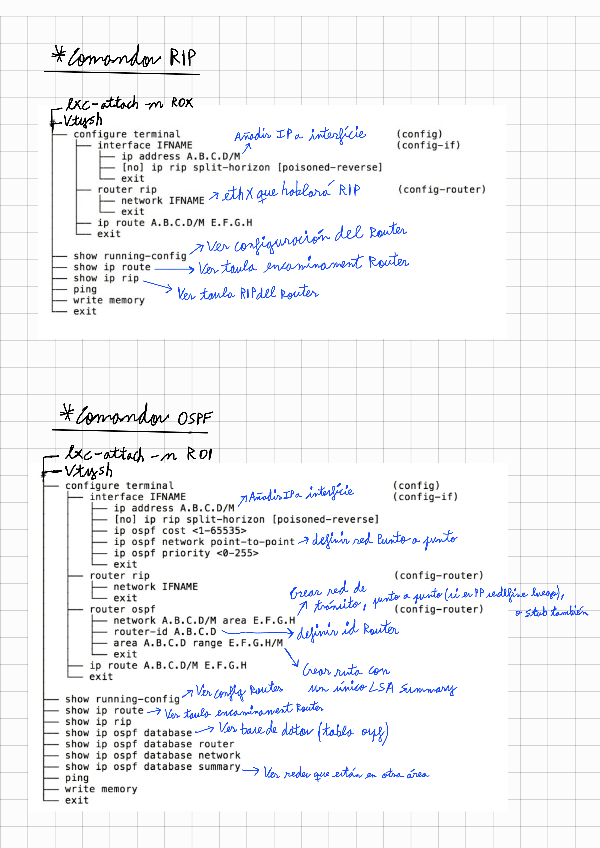 *Comandos RIP
lxc-attach -n R0X
Vtysh
configure terminal (config)
interface IFNAME Añadir IP a interfície (config-if)
ip address A.B.C.D/M
[no] ip rip split-horizon [poisoned-reverse]
exit
router rip (config-router)
network IFNAME ethX que hablará RIP
exit
ip route A.B.C.D/M E.F.G.H
exit
show running-config Ver configuración del Router
show ip route Ver taula encaminament Router
show ip rip Ver taula RIP del Router
ping
write memory
exit
*Comandos OSPF
lxc-attach -n R01
Vtysh
configure terminal (config)
interface IFNAME Añadir IP a interfície (config-if)
ip address A.B.C.D/M
[no] ip rip split-horizon [poisoned-reverse]
ip ospf cost <1-65535>
ip ospf network point-to-point definir red Punto a punto
ip ospf priority <0-255>
exit
router rip (config-router)
network IFNAME
exit
Crear red de
tránsito, punto a punto (si es PP redefine luego),
o stub también
router ospf (config-router)
network A.B.C.D/M area E.F.G.H
router-id A.B.C.D definir id Router
area A.B.C.D range E.F.G.H/M
exit
Crear ruta con
un único LSA Summary
ip route A.B.C.D/M E.F.G.H
exit
show running-config Ver config Routes
show ip route Ver taula encaminament Router
show ip rip
show ip ospf database Ver base de datos (tabla ospf)
show ip ospf database router
show ip ospf database network
show ip ospf database summary Ver redes que están en otra área
ping
write memory
exit